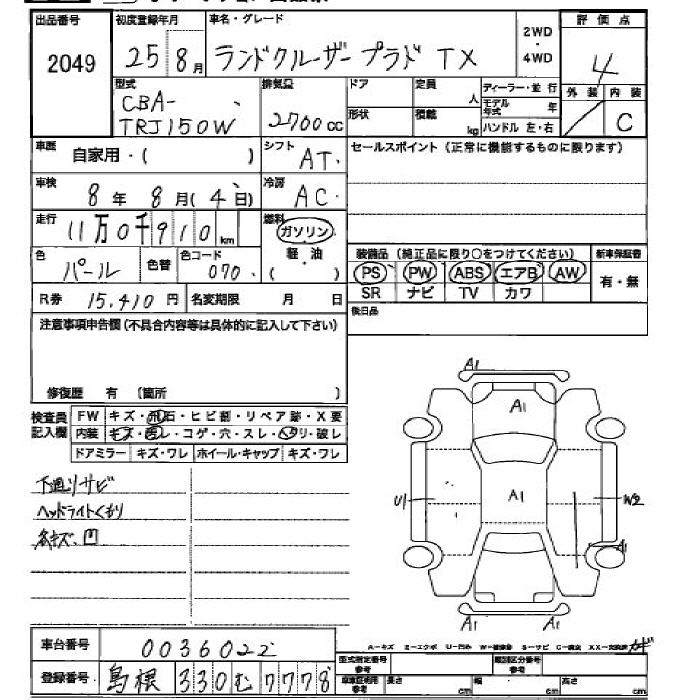 出品番号 初度登録年月 車名・グレード 2WD・4WD 評価点
2049 25 8月 ランドクルーザープラド TX 4
型式 CBA-TRJ150W 排気量 2700cc ドア 定員 人 ディーラー・並 行 外装 内装
形状 積載 kg モデル年式 年 ハンドル 左・右 C
車歴 自家用・( ) シフト AT セールスポイント(正常に機能するものに限ります)
車検 8年 8月(4日) 冷房 AC
走行 11万0千910km 燃料 ガソリン・軽・油 ( )
色 パール 色替 色コード 070
装備品(純正品に限り○をつけてください) 新車保証書
PS PW ABS エアB AW 有・無
SR ナビ TV カワ
R券 15,410円 名変期限 月 日
後日品
注意事項申告欄(不具合内容等は具体的に記入して下さい)
修復歴 有 (箇所 )
検査員記入欄 FW キズ・飛石・ヒビ割・リペア跡・X要
内装 キズ・汚レ・コゲ・穴・スレ・ヘタリ・破レ
ドアミラー キズ・ワレ ホイール・キャップ キズ・ワレ
下廻りサビ
ヘッドライトくもり
各キズ、凹
A1
A1
U1 A1 W2
A1
A1 A1
A-キズ ミ-エクボ U-凹み W-補修跡 S-サビ C-腐食 XX-交換済
車台番号 0036022 型式指定番号 参考 類別区分番号 参考
登録番号 島根 330 む 7778 車庫証明用 参考 長さ cm 幅 cm 高さ cm